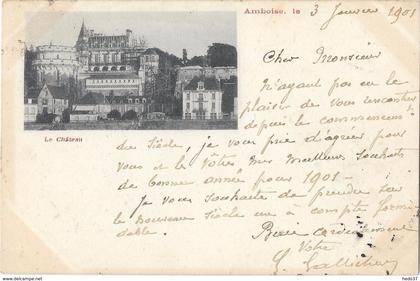 Amboise, le 3 Janvier 1901
Cher Monsieur
N'ayant pas eu le
plaisir de vous rencontrer
depuis le commencement
Le Château
du Siècle, je vous prie d'agréer pour
vous et le Vôtre mes meilleurs souhaits
de bonne année pour 1901 -
Je vous souhaite de prendre sur
le nouveau Siècle un à compte formi
dable.
Bien cordialement
Votre
G.
hedo37